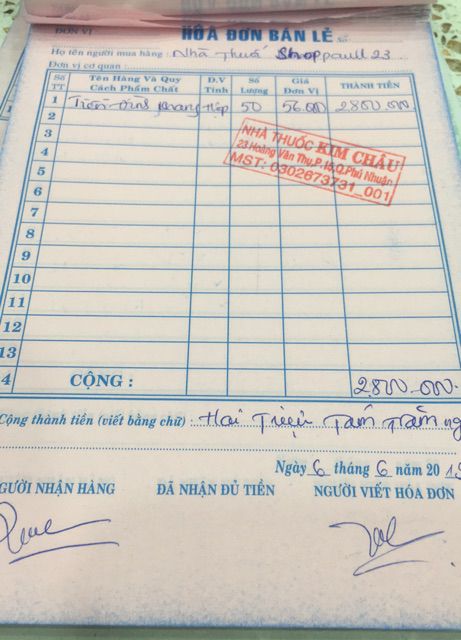 ĐƠN VỊ
HÓA ĐƠN BÁN LẺ Số
Họ tên người mua hàng : Nhà Thuố Shoppaull 23
Đơn vị cơ quan :
Số TT Tên Hàng Và Quy Cách Phẩm Chất Đ.V Tính Số Lượng Giá Đơn Vị THÀNH TIỀN
1 Tiền Hộp 50 56.000 2800.000
2
3
NHÀ THUỐC KIM CHÂU
23 Hoàng Văn Thụ,P.15,Q.Phú Nhuận
MST: 0302673731_001
4
5
6
7
8
9
10
11
12
13
4 CỘNG : 2800.000
Cộng thành tiền (viết bằng chữ) : Hai Triệu Tám Trăm ng
Ngày 6 tháng 6 năm 201
GƯỜI NHẬN HÀNG ĐÃ NHẬN ĐỦ TIỀN NGƯỜI VIẾT HÓA ĐƠN